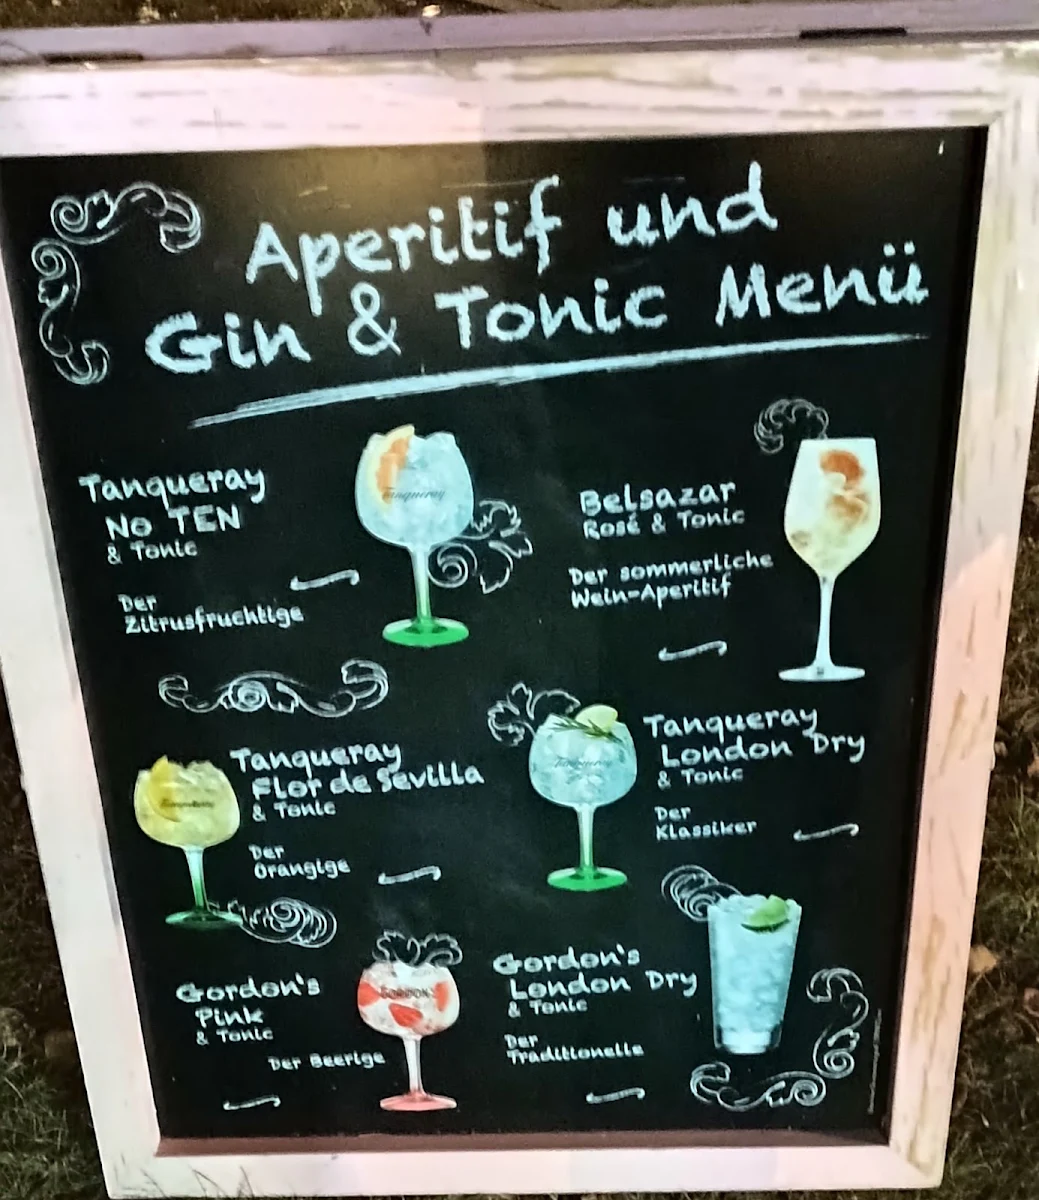 Aperitif und
Gin & Tonic Menü
Tanqueray
No TEN
& Tonic
Der
Zitrusfruchtige
Tanqueray
Belsazar
Rosé & Tonic
Der sommerliche
Wein-Aperitif
Tanqueray
Flor de Sevilla
& Tonic
Der
Orangige
Tanqueray
Tanqueray
London Dry
& Tonic
Der
Klassiker
Tanqueray
Gordon's
Pink
& Tonic
Der Beerige
GORDON'S
Gordon's
London Dry
& Tonic
Der
Traditionelle